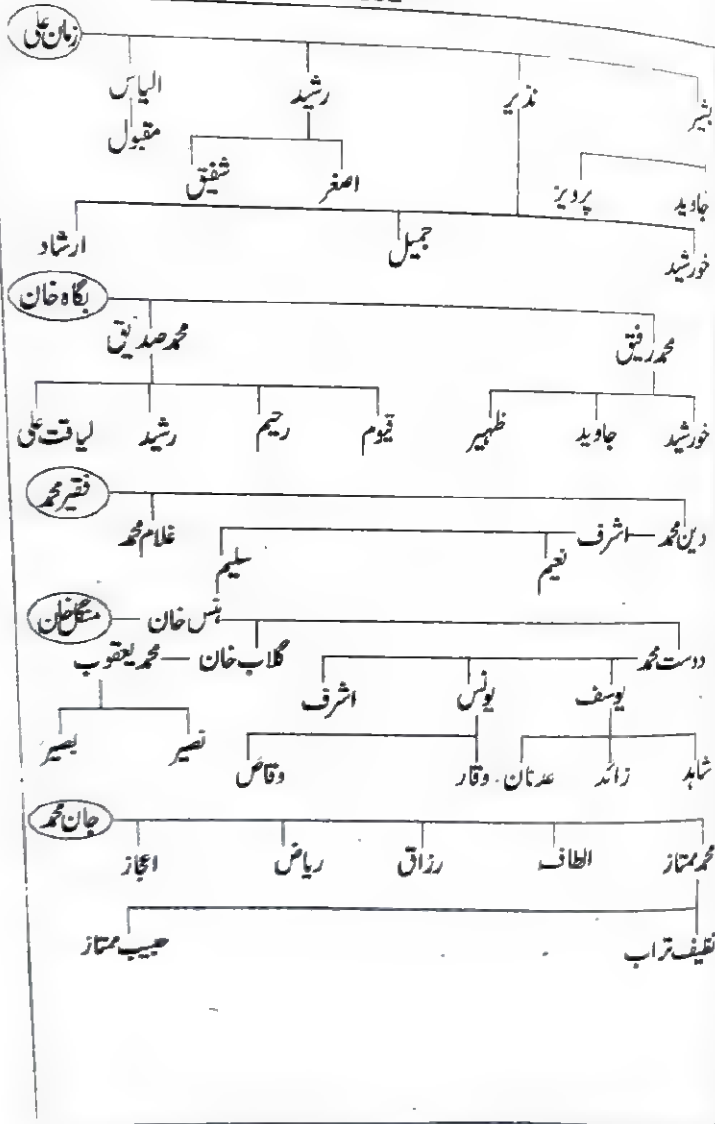 زمان علی
بشیر نذیر رشید الیاس
مقبول
جاوید پرویز اصغر شفیق
خورشید جمیل ارشاد
بگاہ خان
محمد رفیق محمد صدیق
خورشید جاوید ظہیر قیوم رحیم رشید لیاقت علی
فقیر محمد
دین محمد اشرف غلام محمد
نعیم سلیم
منگل خان ہنس خان
دوست محمد گلاب خان محمد یعقوب
یوسف یونس اشرف
نصیر بصیر
شاہد زائد عدنان وقار وقاص
جان محمد
محمد ممتاز الطاف رزاق ریاض اعجاز
تراب حبیب ممتاز